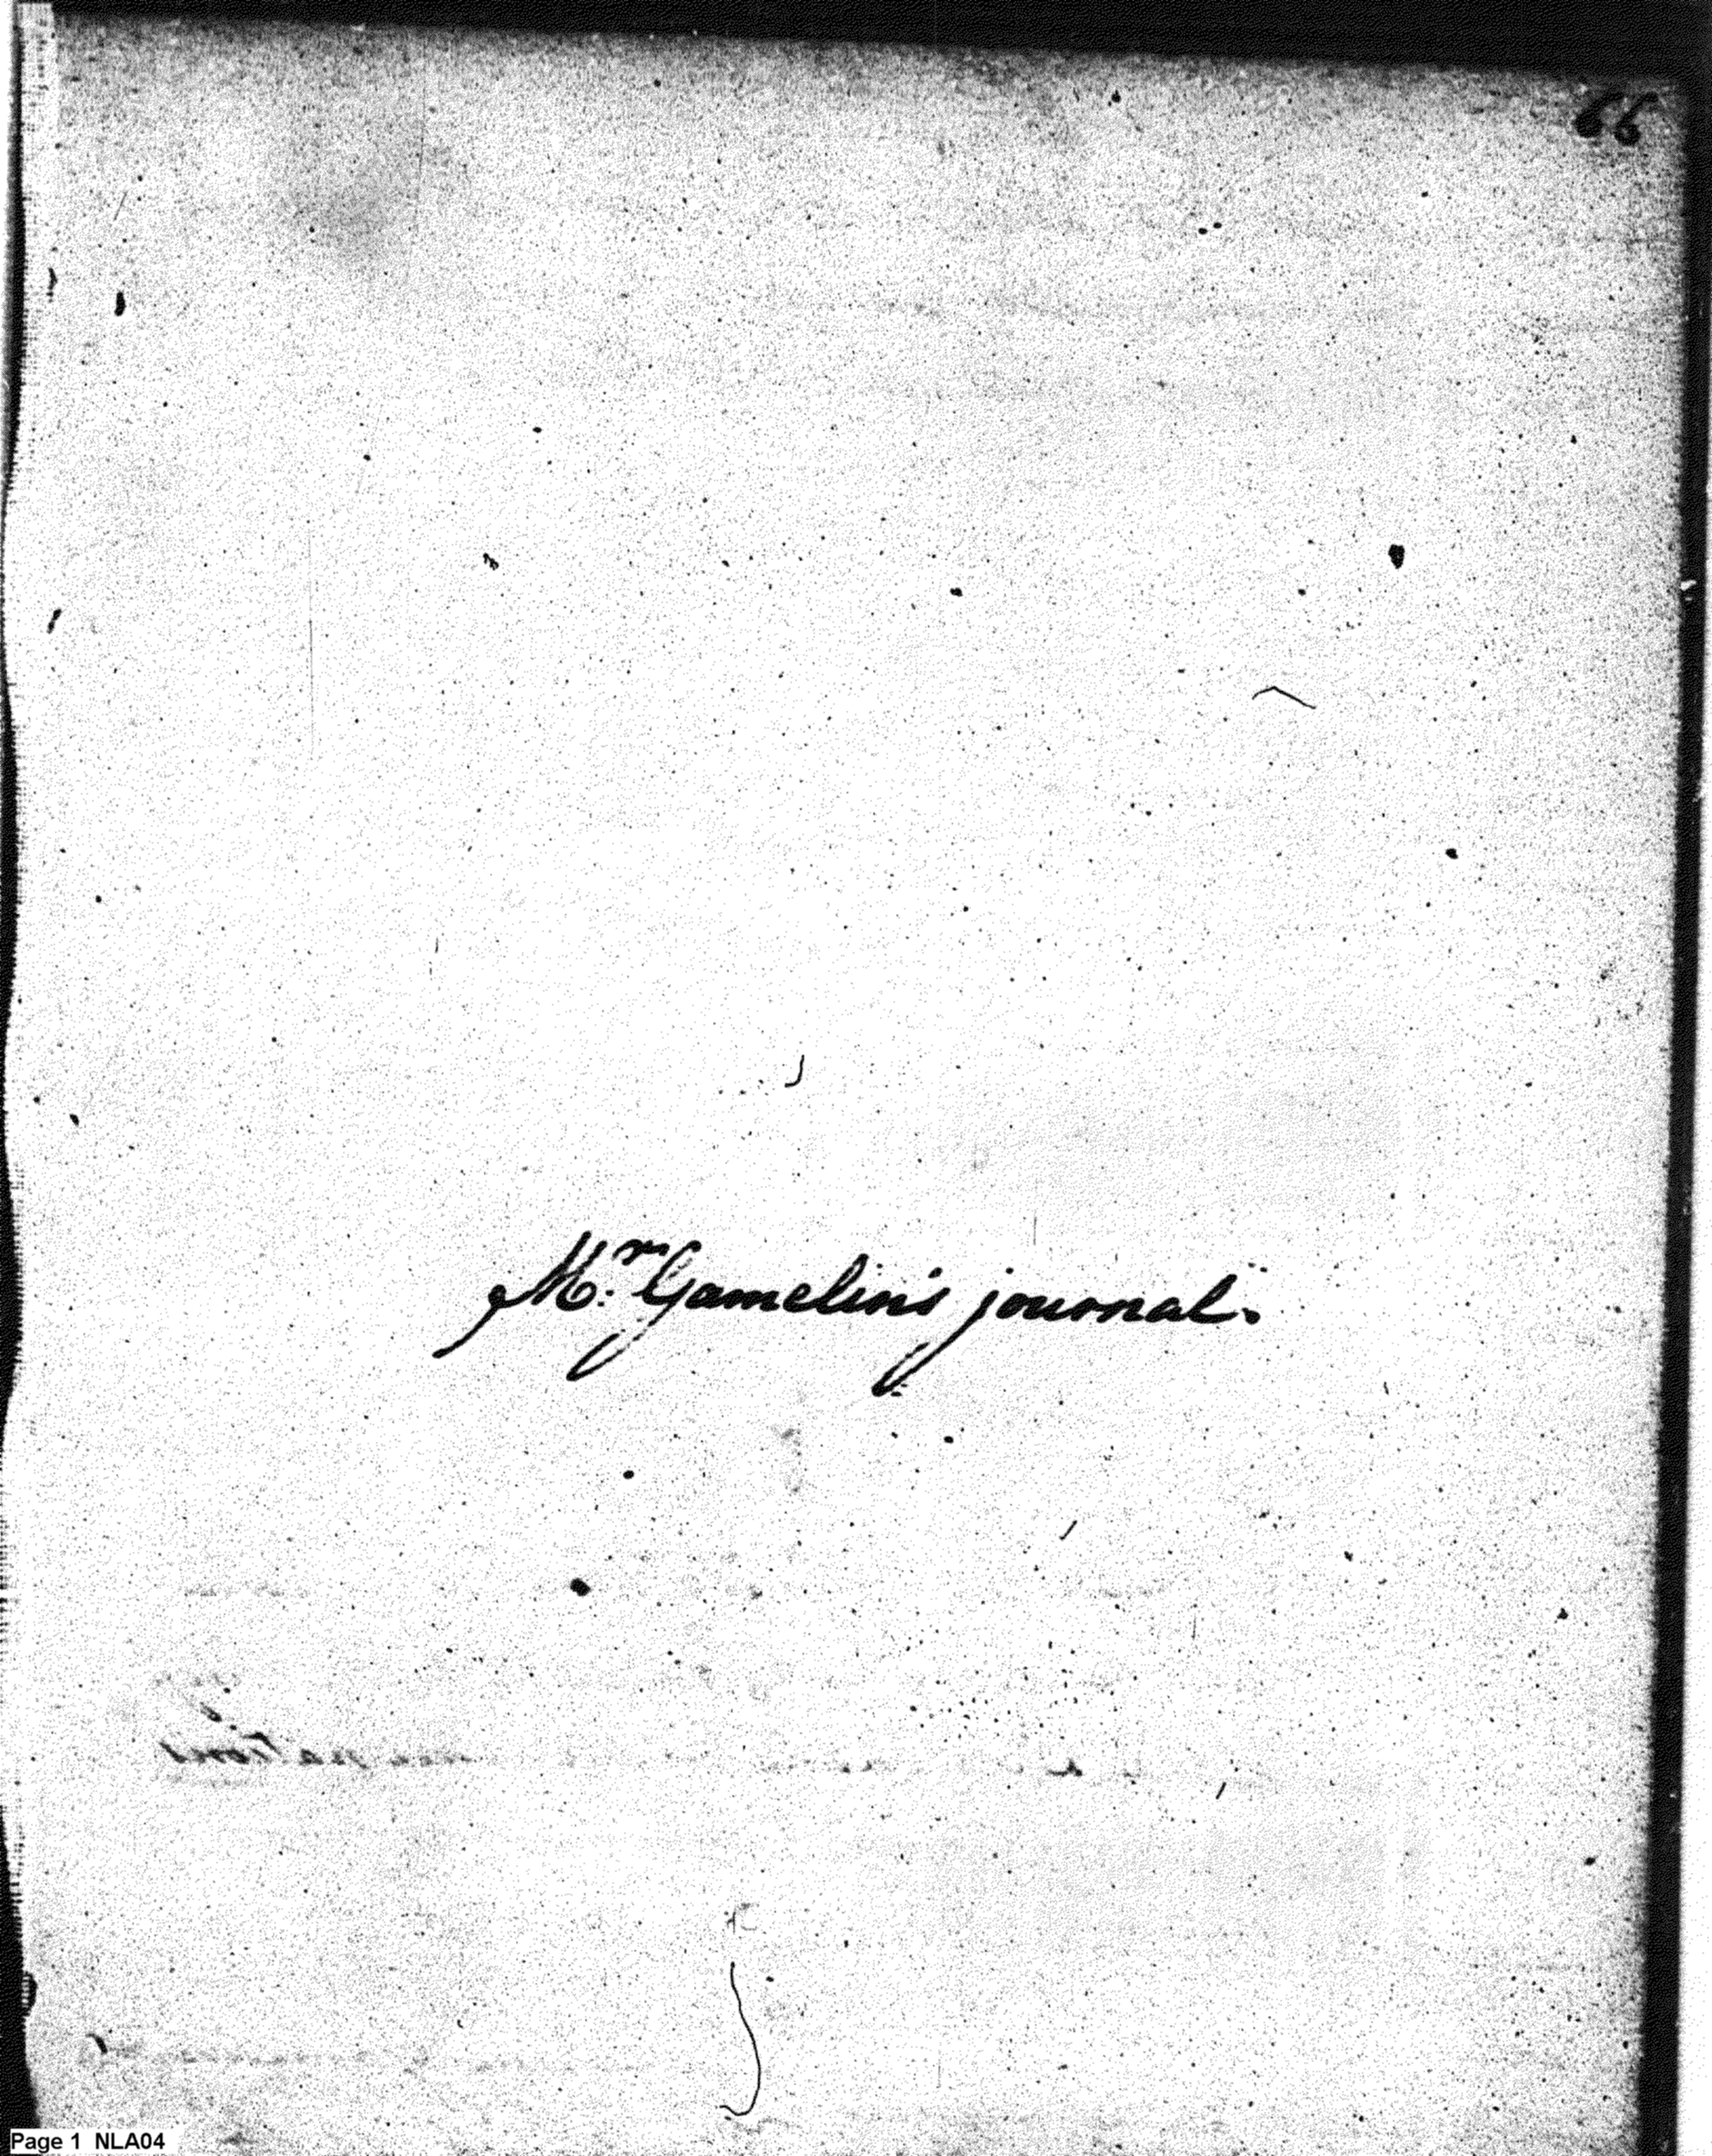 66
Mr. Gamelin's journal.
Page 1 NLA04